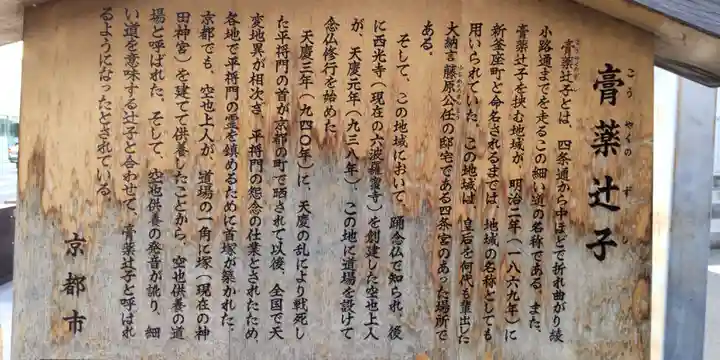 膏薬辻子
こうやくのずし
膏薬辻子とは、四条通から中ほどで折れ曲がり綾
こうやくのずし
小路通までを走るこの細い道の名称である。また、
膏薬辻子を挟む地域が、明治二年(一八六九年)に
新釜座町と命名されるまでは、地域の名称としても
用いられていた。この地域は、皇后を何代も輩出した
大納言藤原公任の邸宅である四条宮のあった場所で
ある。
そして、この地域において、踊念仏で知られ、後
に西光寺(現在の六波羅蜜寺)を創建した空也上人
が、天慶元年(九三八年)、この地に道場を設けて
念仏修行を始めた。
天慶三年(九四〇年)に、天慶の乱により戦死し
た平将門の首が京都の町で晒されて以後、全国で天
変地異が相次ぎ、平将門の怨念の仕業とされたため、
各地で平将門の霊を鎮めるために首塚が築かれた。
京都でも、空也上人が、道場の一角に塚(現在の神
田神宮)を建てて供養したことから、空也供養の道
場と呼ばれた。そして、空也供養の発音が訛り、細
い道を意味する辻子と合わせて、膏薬辻子と呼ばれ
るようになったとされている。
京都市